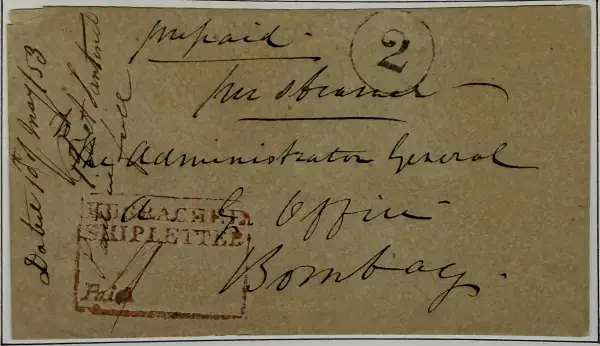 prepaid.
2
per Steamer
The Administrator General
A G Office
Bombay.
KURRACHEE
SHIPLETTER
Paid
May/53